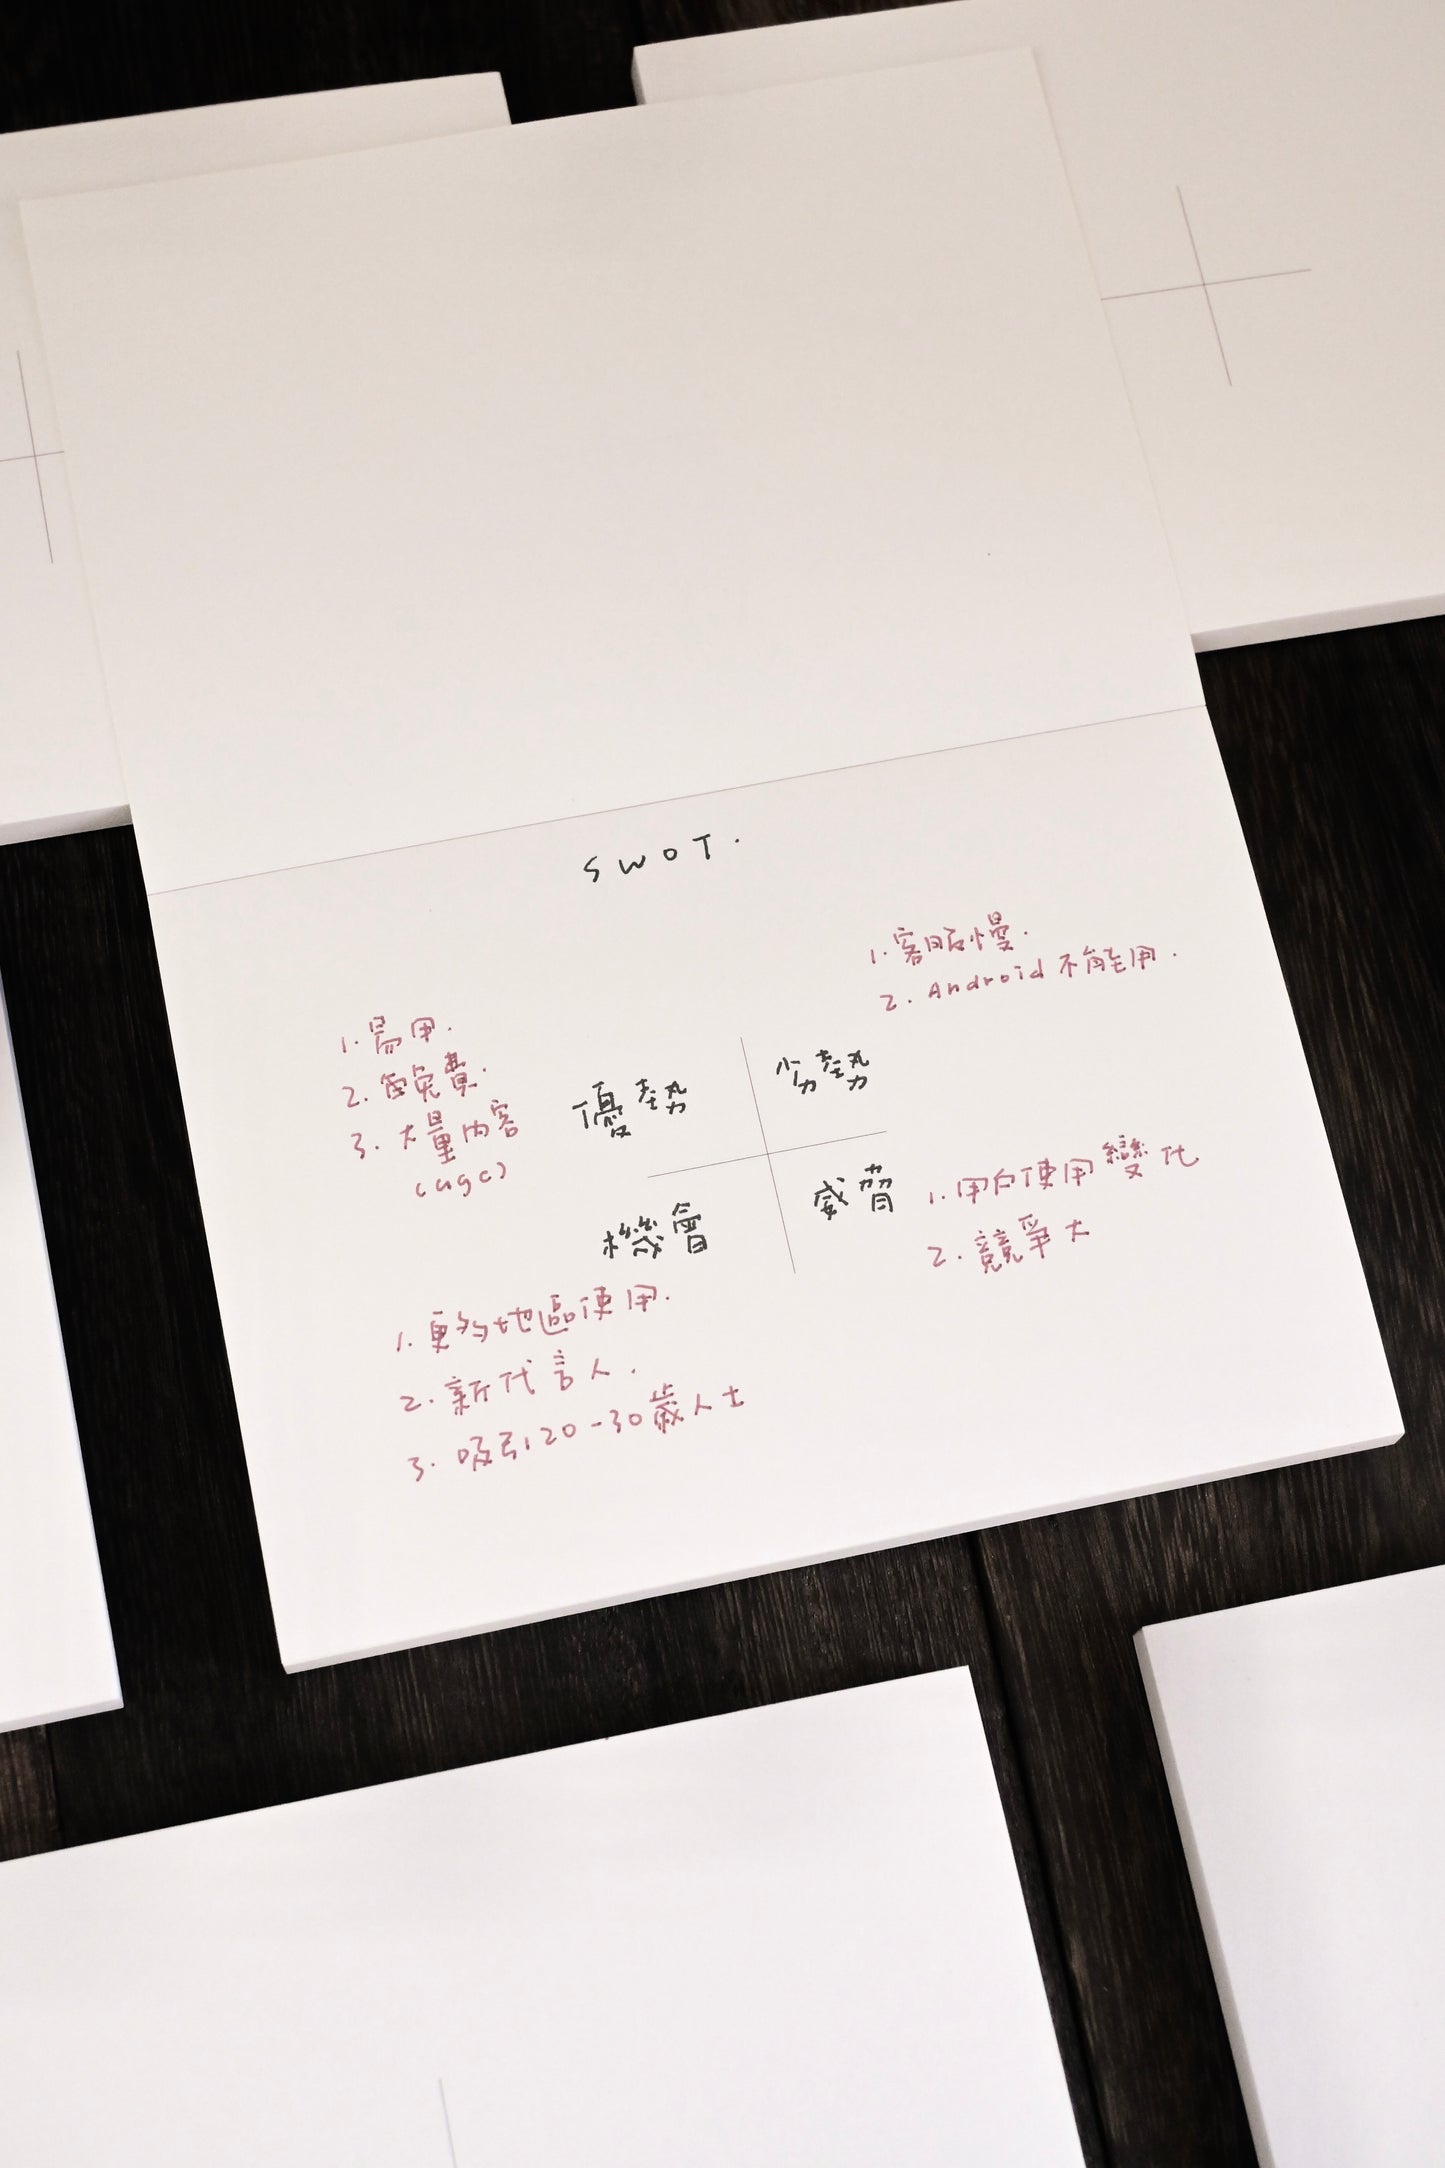 SWOT.
1. 易用.
2. 免費.
3. 大量內容
(ugc)
優勢
1. 客服慢.
2. Android 不能用.
劣勢
機會
1. 更多地區使用.
2. 新代言人.
3. 吸引20-30歲人士
威脅
1. 用戶使用變化
2. 競爭大